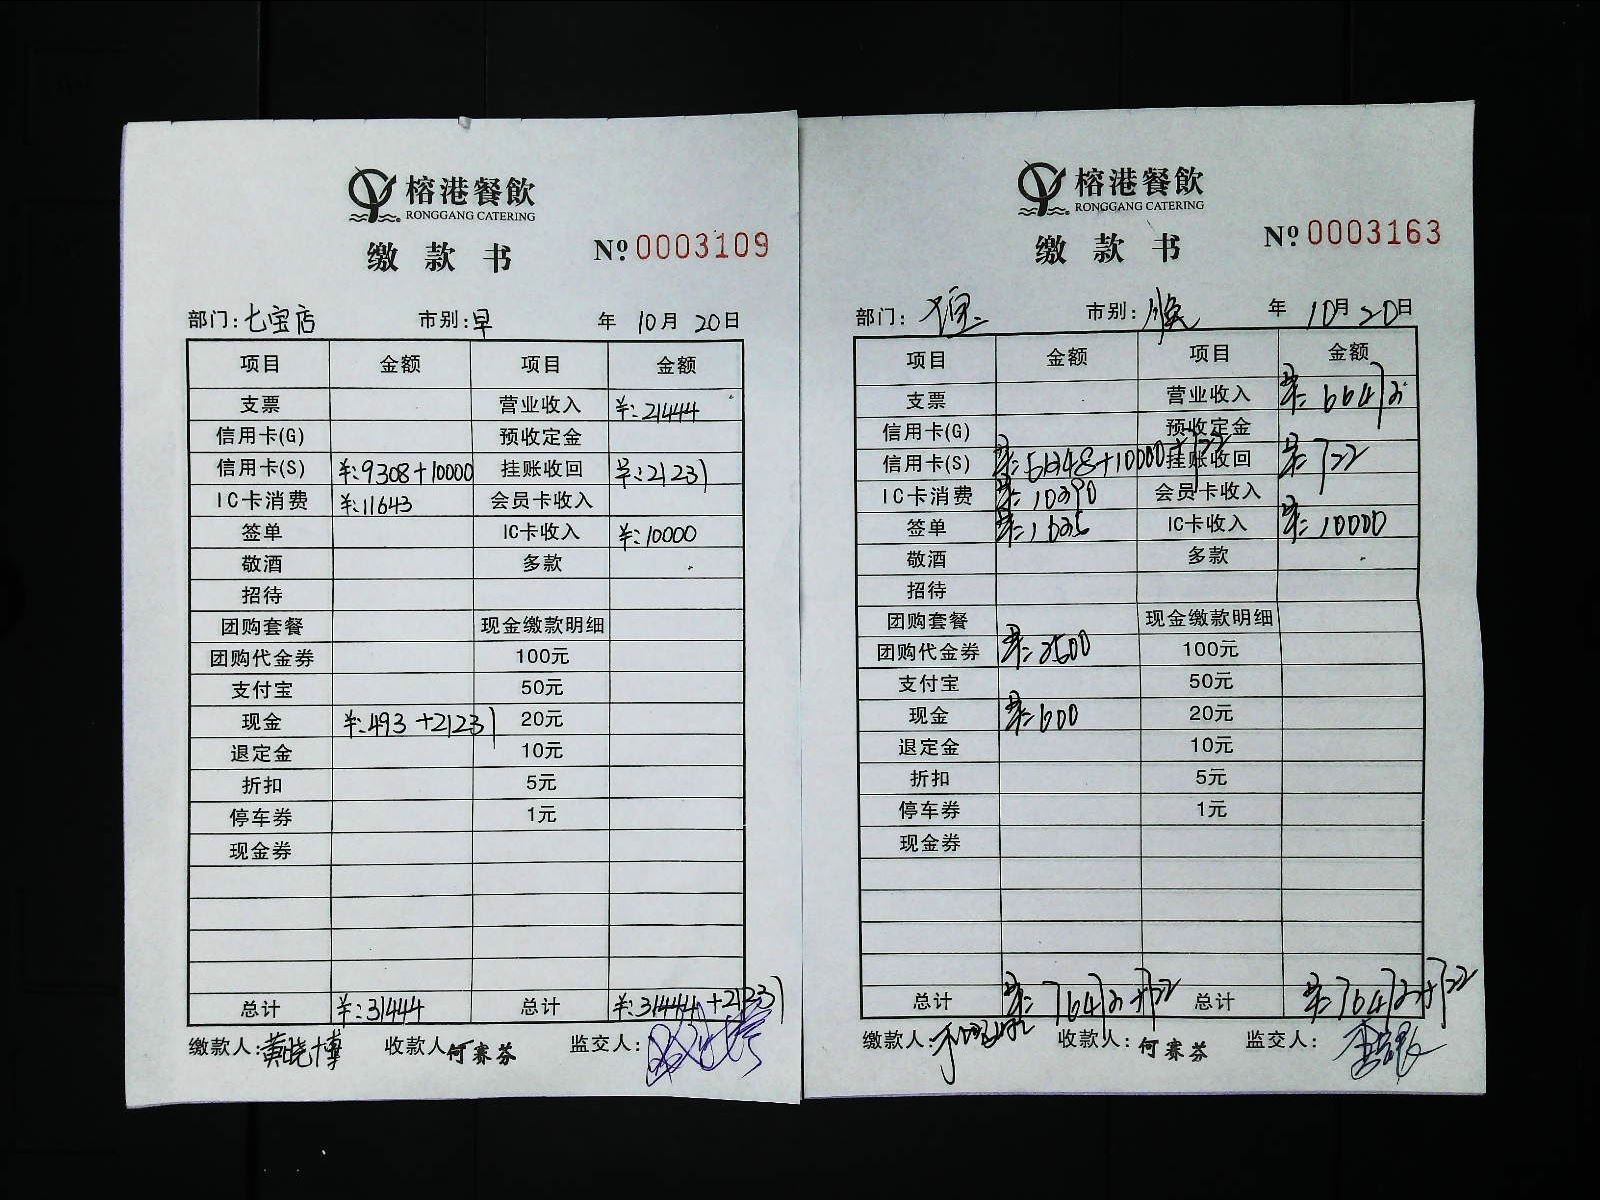 榕港餐飲
RONGGANG CATERING
缴款书
№ 0003109
部门:七宝店 市别:早 年 10月 20日
项目 金额 项目 金额
支票 营业收入 ¥:21444
信用卡(G) 预收定金
信用卡(S) ¥:9308+10000 挂账收回 ¥:21231
IC卡消费 ¥:11643 会员卡收入
签单 IC卡收入 ¥:10000
敬酒 多款
招待
团购套餐 现金缴款明细
团购代金券 100元
支付宝 50元
现金 ¥:493+21231 20元
退定金 10元
折扣 5元
停车券 1元
现金券
总计 ¥:31444 总计 ¥:31444+21231
缴款人:黄晓博 收款人 何赛芬 监交人:
榕港餐飲
RONGGANG CATERING
缴款书
№ 0003163
部门: 市别:晚 年 10月20日
项目 金额 项目 金额
支票 营业收入
信用卡(G) 预收定金
信用卡(S) 挂账收回 ¥:722
IC卡消费 ¥:10390 会员卡收入
签单 ¥:1635 IC卡收入 ¥:10000
敬酒 多款
招待
团购套餐 现金缴款明细
团购代金券 100元
支付宝 50元
现金 ¥:600 20元
退定金 10元
折扣 5元
停车券 1元
现金券
总计 总计
缴款人: 收款人: 何赛芬 监交人: